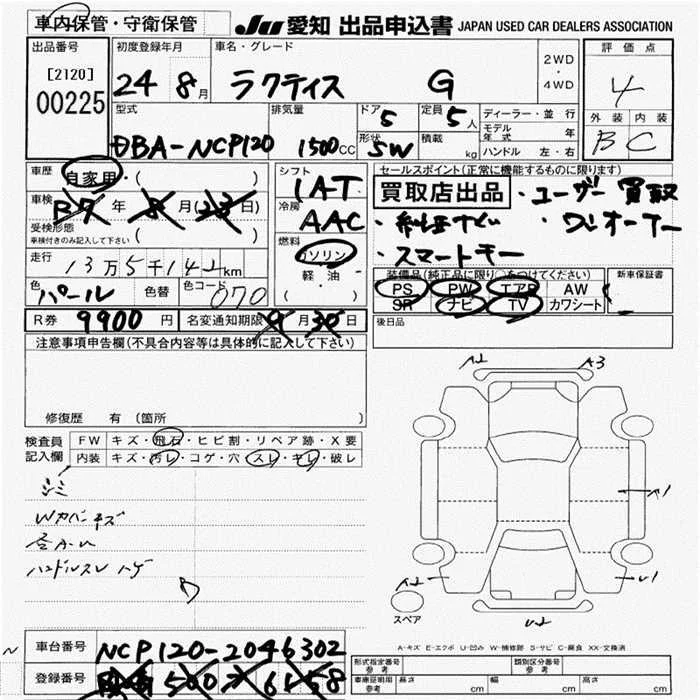 車内保管・守衛保管
JU 愛知 出品申込書 JAPAN USED CAR DEALERS ASSOCIATION
出品番号
[2120]
00225
初度登録年月
24 8月
車名・グレード
ラクティス G
2WD
・
4WD
評価点
4
外装 内装
B C
型式
DBA-NCP120
排気量
1500cc
ドア
5
形状
5W
定員
5人
積載
kg
ディーラー・並行
モデル年式 年
ハンドル 左・右
車歴 自家用・( )
車検 年 月 日
受検形態
車検付きのみ記入して下さい ( )
走行
13万5千142km
色 パール 色替 色コード 070
R券 9900円 名変通知期限 9月30日
シフト
IAT
冷房
AAC
燃料
ガソリン
軽・油
( )
セールスポイント(正常に機能するものに限ります)
買取店出品 ・ユーザー買取
・純正ナビ ・ワンオーナー
・スマートキー
装備品(純正品に限り○をつけてください)
PS PW エアB AW
SR ナビ TV カワシート
新車保証書
後日品
注意事項申告欄(不具合内容等は具体的に記入して下さい)
修復歴 有 (箇所 )
検査員記入欄
FW キズ・飛石・ヒビ割・リペア跡・X要
内装 キズ・汚レ・コゲ・穴・スレ・キレ・破レ
シミ
Wカバーキズ
ハンドルスレ
A2 A3
A2
U2
スペア
A-キズ E-エクボ U-凹み W-補修跡 S-サビ C-腐食 XX-交換済
車台番号 NCP120-2046302
登録番号 500 6158
形式指定番号 参考
類別区分番号 参考
車庫証明用 参考 長さ cm 幅 cm 高さ cm